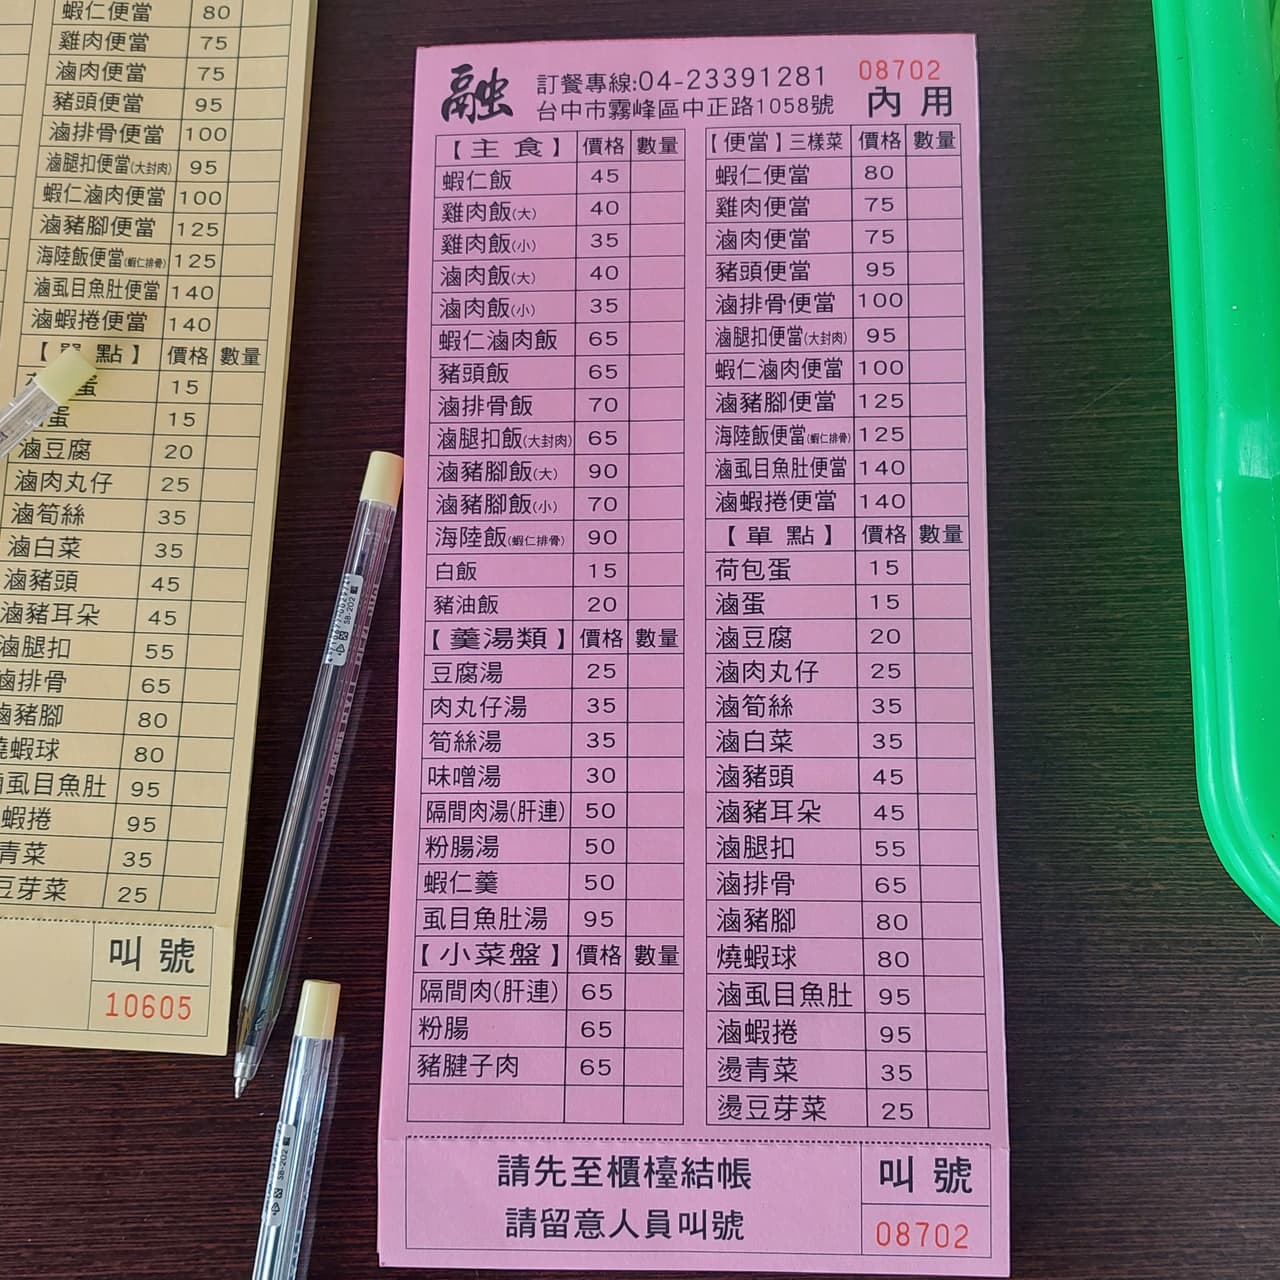 蝦仁便當 80
雞肉便當 75
滷肉便當 75
豬頭便當 95
滷排骨便當 100
滷腿扣便當(大封肉) 95
蝦仁滷肉便當 100
滷豬腳便當 125
海陸飯便當(蝦仁排骨) 125
滷虱目魚肚便當 140
滷蝦捲便當 140
【單點】 價格 數量
蛋 15
蛋 15
滷豆腐 20
滷肉丸仔 25
滷筍絲 35
滷白菜 35
滷豬頭 45
滷豬耳朵 45
滷腿扣 55
滷排骨 65
滷豬腳 80
燒蝦球 80
虱目魚肚 95
蝦捲 95
青菜 35
豆芽菜 25
叫號
10605
融
訂餐專線:04-23391281
台中市霧峰區中正路1058號
08702
內用
【主食】 價格 數量
蝦仁飯 45
雞肉飯(大) 40
雞肉飯(小) 35
滷肉飯(大) 40
滷肉飯(小) 35
蝦仁滷肉飯 65
豬頭飯 65
滷排骨飯 70
滷腿扣飯(大封肉) 65
滷豬腳飯(大) 90
滷豬腳飯(小) 70
海陸飯(蝦仁排骨) 90
白飯 15
豬油飯 20
【羹湯類】 價格 數量
豆腐湯 25
肉丸仔湯 35
筍絲湯 35
味噌湯 30
隔間肉湯(肝連) 50
粉腸湯 50
蝦仁羹 50
虱目魚肚湯 95
【小菜盤】 價格 數量
隔間肉(肝連) 65
粉腸 65
豬腱子肉 65
【便當】三樣菜 價格 數量
蝦仁便當 80
雞肉便當 75
滷肉便當 75
豬頭便當 95
滷排骨便當 100
滷腿扣便當(大封肉) 95
蝦仁滷肉便當 100
滷豬腳便當 125
海陸飯便當(蝦仁排骨) 125
滷虱目魚肚便當 140
滷蝦捲便當 140
【單點】 價格 數量
荷包蛋 15
滷蛋 15
滷豆腐 20
滷肉丸仔 25
滷筍絲 35
滷白菜 35
滷豬頭 45
滷豬耳朵 45
滷腿扣 55
滷排骨 65
滷豬腳 80
燒蝦球 80
滷虱目魚肚 95
滷蝦捲 95
燙青菜 35
燙豆芽菜 25
請先至櫃檯結帳
請留意人員叫號
叫號
08702
SB-202
SB-202